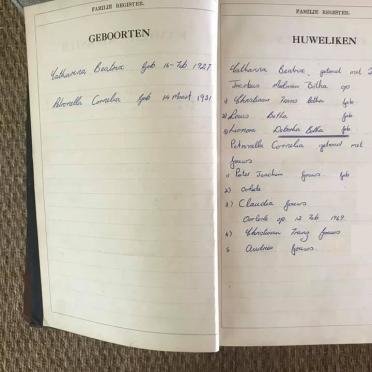 FAMILIE REGISTER.
GEBOORTEN
Katharina Beatrix Geb 16-Feb 1927
Petronella Cornelia Geb 14 Maart 1931
FAMILIE REGISTER.
HUWELIKEN
Katharina Beatrix, getroud met
Botha op
1) Christiaan Frans Botha Geb
2) Louis Botha Geb
3) Leonora Deborha Botha Geb
Petronella Cornelia getroud met
Gouws
1) Pieter Jochim Gouws Geb
2)
3) Claudia Gouws
Oorlede op 12 Feb 1969
4) Christiaan Frans Gouws
5 Andries Gouws.